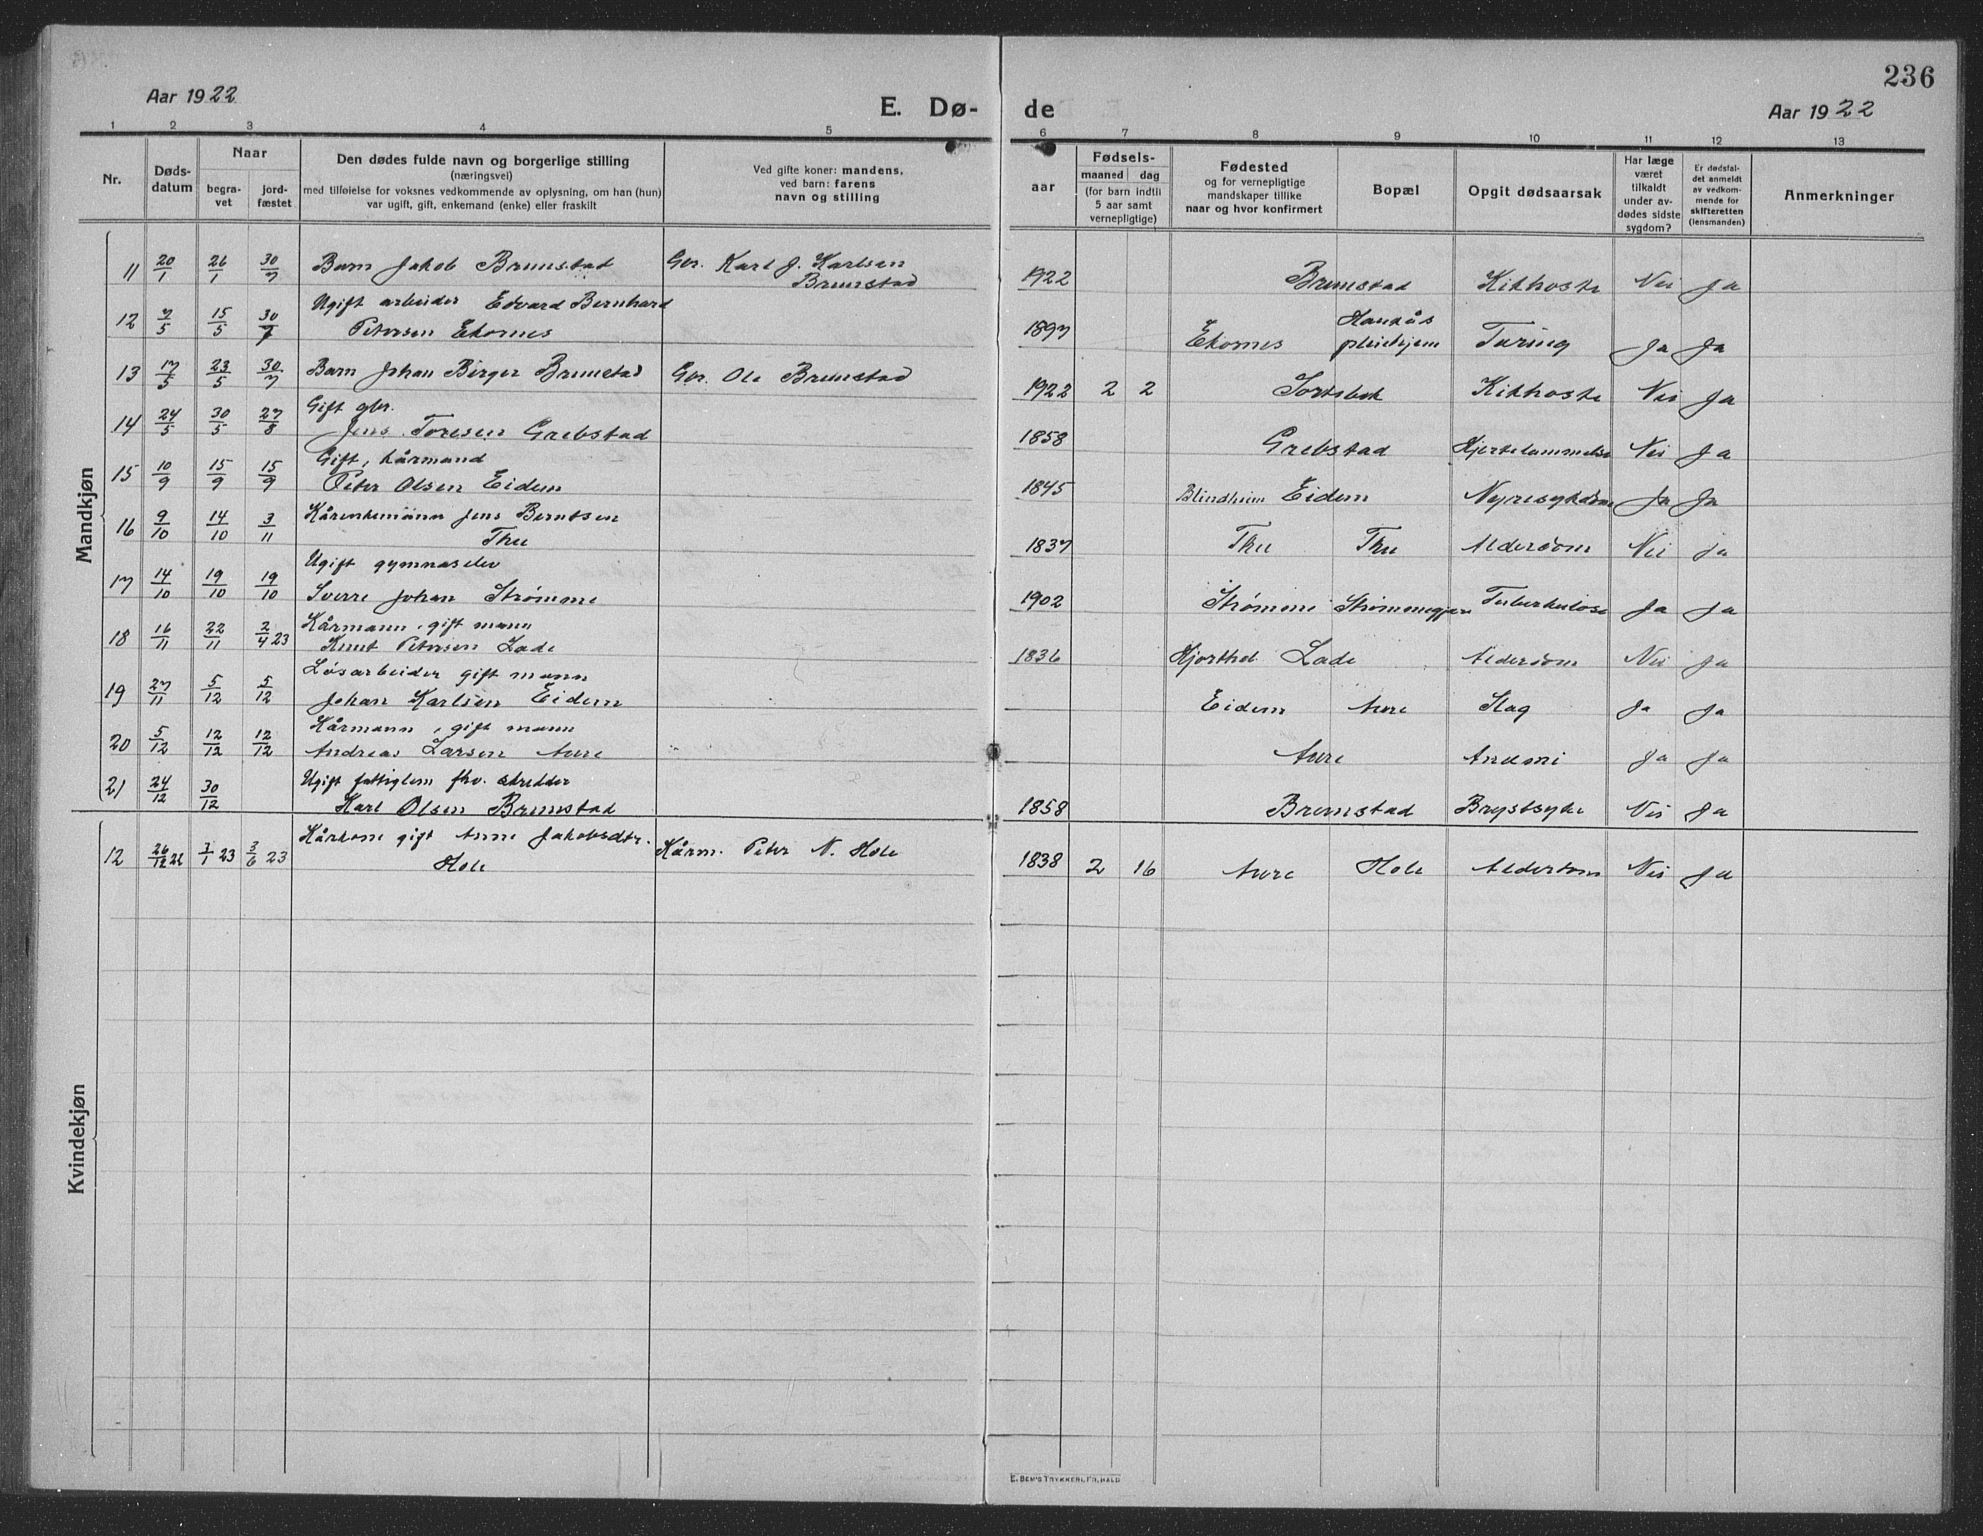 236
Aar 1922
E. Dø-
de
Aar 1922
1 2 3 4 5 6 7 8 9 10 11 12 13
Nr.
Døds-
datum
Naar
begra-
vet
jord-
fæstet
Den dødes fulde navn og borgerlige stilling
(næringsvei)
med tilføielse for voksnes vedkommende av oplysning, om han (hun)
var ugift, gift, enkemand (enke) eller fraskilt
Ved gifte koner: mandens,
ved barn: farens
navn og stilling
aar
Fødsels-
maaned dag
(for barn indtil
5 aar samt
vernepligtige)
Fødested
og for vernepligtige
mandskaper tillike
naar og hvor konfirmert
Bopæl
Opgit dødsaarsak
Har læge
været
tilkaldt
under av-
dødes sidste
sygdom?
Er dødsfal-
det anmeldt
av vedkom-
mende for
skifteretten
(lensmanden)
Anmerkninger
Mandkjøn
11 20/1 26/1 30/7 Barn Jakob Brunstad Gbr. Karl J. Karlsen
Brunstad 1922 Brunstad Kikhoste Nei Ja
12 7/5 15/5 30/7 Ugift arbeider Edvard Bernhard
Petersen Ekornes 1897 Ekornes Haukås
pleiehjem Tæring Ja Ja
13 17/5 23/5 30/7 Barn Johan Birger Brunstad Gbr. Ole Brunstad 1922 2 2 Tortebek Kikhoste Nei Ja
14 24/5 30/5 27/8 Gift gbr.
Jens Toresen Grebstad 1858 Grebstad Hjertelammelse Nei Ja
15 10/9 15/9 15/9 Gift, kårmand
Peter Olsen Eidem 1845 Blindheim Eidem Nyresykdom Ja Ja
16 9/10 14/10 3/11 Kårenkemann Jens Berntsen
Thu 1837 Thu Thu Alderdom Nei Ja
17 14/10 19/10 19/10 Ugift gymnaselev
Sverre Johan Strømme 1902 Strømme Strømmegjære Tuberkulose Ja Ja
18 16/11 22/11 2/4 23 Kårmann, gift mann
Knut Petersen Lade 1836 Hjorthol Lade Alderdom Nei Ja
19 27/11 5/12 5/12 Løsarbeider gift mann
Johan Karlsen Eidem Eidem Aure Slag Ja Ja
20 5/12 12/12 12/12 Kårmann, gift mann
Andreas Larsen Aure Aure Anæmi Ja Ja
21 24/12 30/12 Ugift fattiglem fhv. skredder
Karl Olsen Brunstad 1858 Brunstad Brystsyke Nei Ja
Kvindekjøn
12 26/12 22 3/1 23 3/6 23 Kårkone gift Anne Jakobsdtr.
Hole Kårm. Peter N. Hole 1838 2 16 Aure Hole Alderdom Nei Ja
E. SEM'S TRYKKERI, FR.HALD